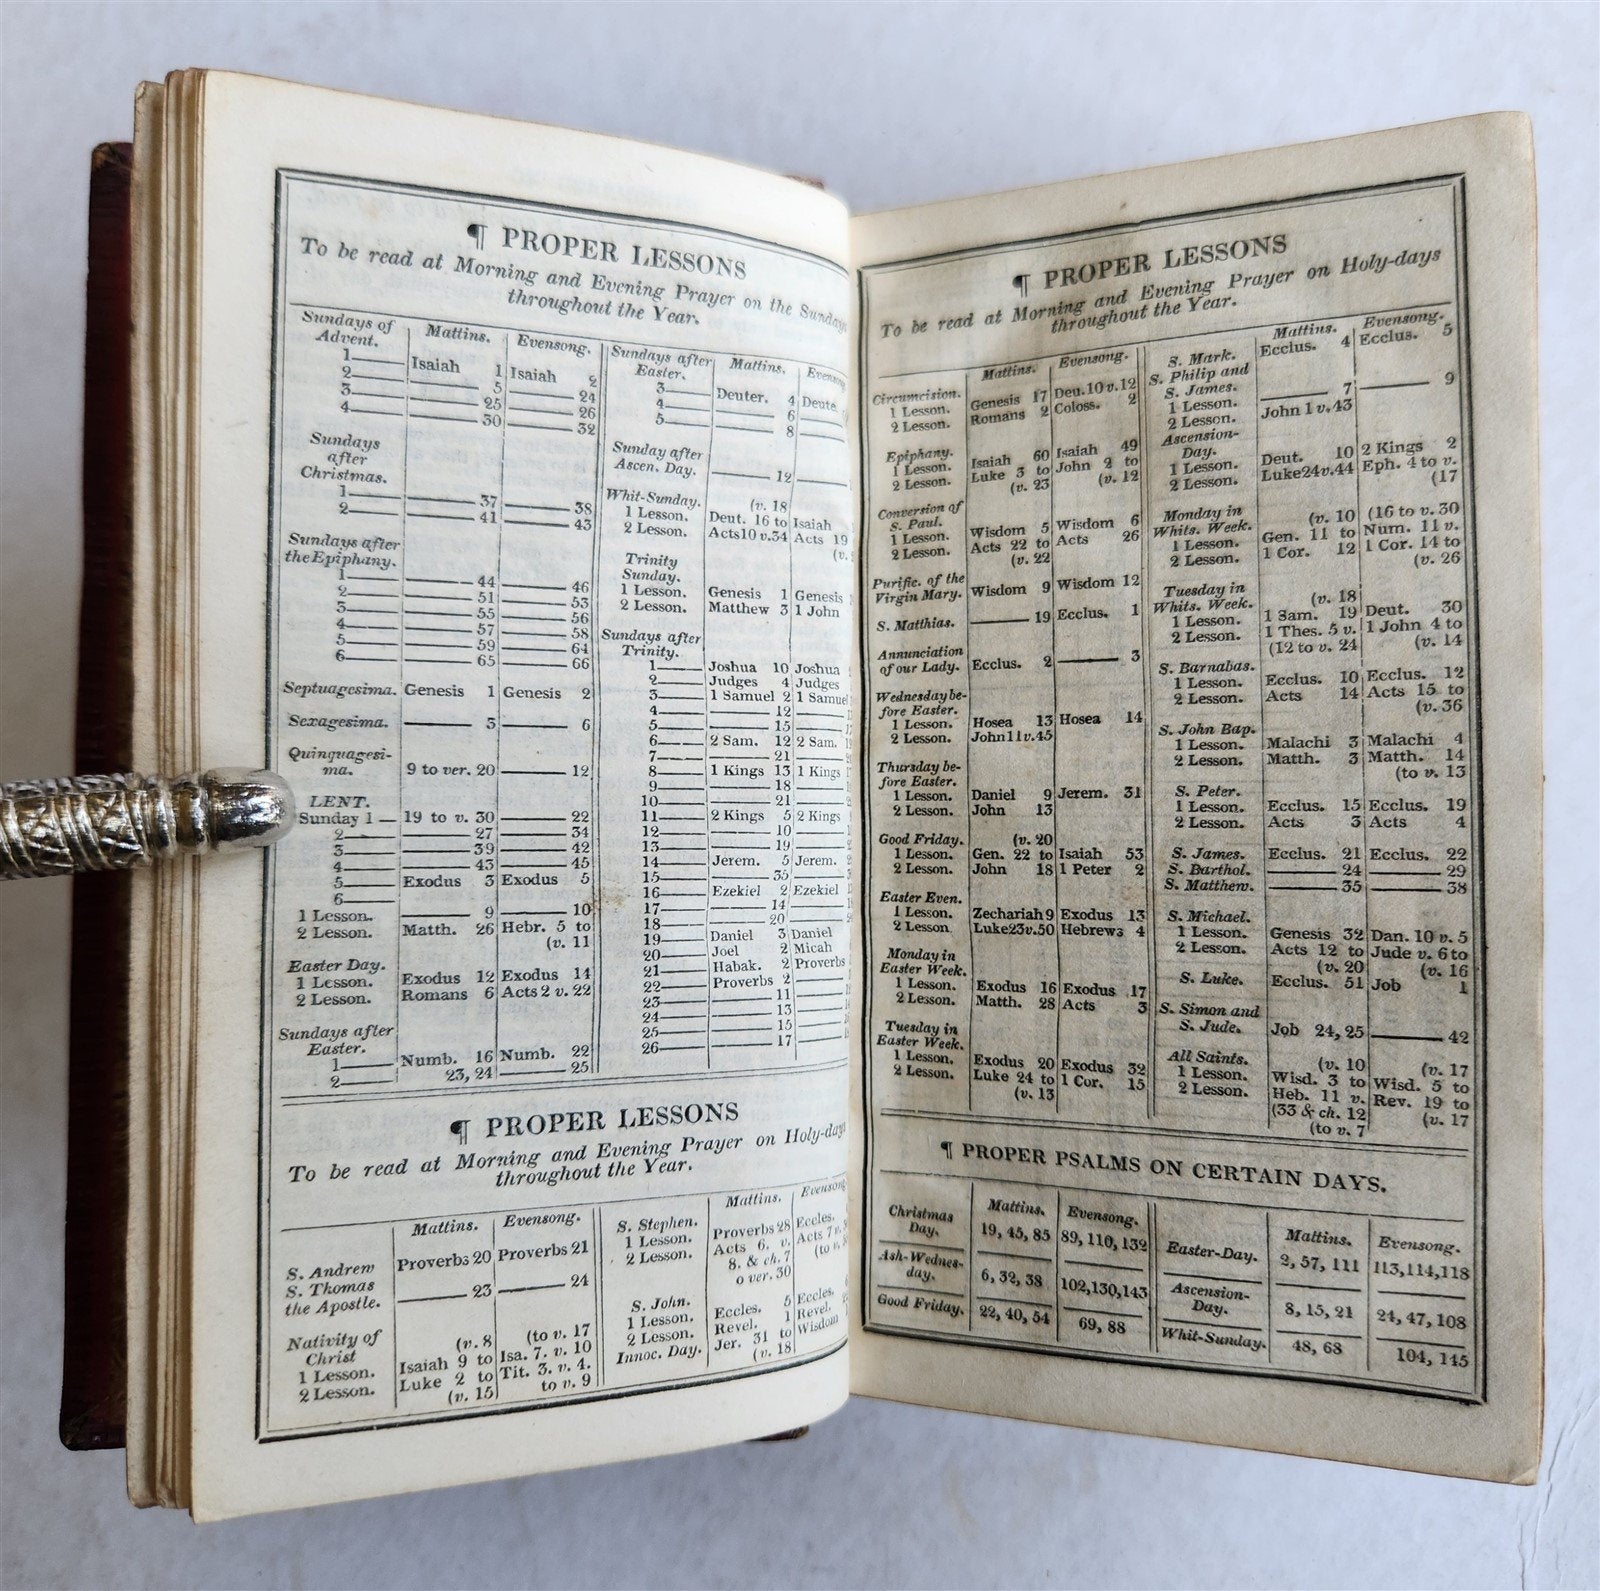 ¶ PROPER LESSONS
To be read at Morning and Evening Prayer on the Sundays
throughout the Year.
Sundays of Advent. Mattins. Evensong.
1 Isaiah 1 Isaiah 2
2 —— 5 —— 24
3 —— 25 —— 26
4 —— 30 —— 32
Sundays
after
Christmas.
1 —— 37 —— 38
2 —— 41 —— 43
Sundays after
the Epiphany.
1 —— 44 —— 46
2 —— 51 —— 53
3 —— 55 —— 56
4 —— 57 —— 58
5 —— 59 —— 64
6 —— 65 —— 66
Septuagesima. Genesis 1 Genesis 2
Sexagesima. —— 3 —— 6
Quinquagesi-
ma. 9 to ver. 20 —— 12
LENT.
Sunday 1 — 19 to v. 30 —— 22
2 —— 27 —— 34
3 —— 39 —— 42
4 —— 43 —— 45
5 —— Exodus 3 Exodus 5
6 ——
1 Lesson. —— 9 —— 10
2 Lesson. Matth. 26 Hebr. 5 to
(v. 11
Easter Day.
1 Lesson. Exodus 12 Exodus 14
2 Lesson. Romans 6 Acts 2 v. 22
Sundays after
Easter.
1 —— Numb. 16 Numb. 22
2 —— 23, 24 —— 25
Sundays after Mattins.
Easter.
3 —— Deuter. 4
4 —— 6
5 —— 8
Sunday after
Ascen. Day. —— 12
Whit-Sunday. (v. 18
1 Lesson. Deut. 16 to Isaiah
2 Lesson. Acts 10 v. 34 Acts 19
(v.
Trinity
Sunday.
1 Lesson. Genesis 1 Genesis
2 Lesson. Matthew 3 1 John
Sundays after
Trinity.
1 —— Joshua 10 Joshua
2 —— Judges 4 Judges
3 —— 1 Samuel 2 1 Samuel
4 —— 12
5 —— 15
6 —— 2 Sam. 12 2 Sam.
7 —— 21
8 —— 1 Kings 13 1 Kings
9 —— 18
10 —— 21
11 —— 2 Kings 5 2 Kings
12 —— 10
13 —— 19
14 —— Jerem. 5 Jerem.
15 —— 35
16 —— Ezekiel 2 Ezekiel
17 —— 14
18 —— 20
19 —— Daniel 3 Daniel
20 —— Joel 2 Micah
21 —— Habak. 2 Proverbs
22 —— Proverbs 2
23 —— 11
24 —— 13
25 —— 15
26 —— 17
¶ PROPER LESSONS
To be read at Morning and Evening Prayer on Holy-days
throughout the Year.
Mattins. Evensong.
S. Andrew Proverbs 20 Proverbs 21
S. Thomas
the Apostle. —— 23 —— 24
Nativity of
Christ (v. 8 (to v. 17
1 Lesson. Isaiah 9 to Isa. 7. v. 10
2 Lesson. Luke 2 to Tit. 3. v. 4.
(v. 15 to v. 9
Mattins. Evensong
S. Stephen.
1 Lesson. Proverbs 28 Eccles.
2 Lesson. Acts 6. v. Acts 7 v.
8. & ch. 7 (to v.
o ver. 30
S. John.
1 Lesson. Eccles. 5 Eccles.
2 Lesson. Revel. 1 Revel.
Innoc. Day. Jer. 31 to Wisdom
(v. 18
¶ PROPER LESSONS
To be read at Morning and Evening Prayer on Holy-days
throughout the Year.
Mattins. Evensong.
Circumcision.
1 Lesson. Genesis 17 Deu. 10 v. 12
2 Lesson. Romans 2 Coloss. 2
Epiphany.
1 Lesson. Isaiah 60 Isaiah 49
2 Lesson. Luke 3 to John 2 to
(v. 23 (v. 12
Conversion of
S. Paul.
1 Lesson. Wisdom 5 Wisdom 6
2 Lesson. Acts 22 to Acts 26
(v. 22
Purific. of the
Virgin Mary. Wisdom 9 Wisdom 12
S. Matthias. —— 19 Ecclus. 1
Annunciation
of our Lady. Ecclus. 2 —— 3
Wednesday be-
fore Easter.
1 Lesson. Hosea 13 Hosea 14
2 Lesson. John 11 v. 45
Thursday be-
fore Easter.
1 Lesson. Daniel 9 Jerem. 31
2 Lesson. John 13
Good Friday. (v. 20
1 Lesson. Gen. 22 to Isaiah 53
2 Lesson. John 18 1 Peter 2
Easter Even.
1 Lesson. Zechariah 9 Exodus 13
2 Lesson Luke 23 v. 50 Hebrews 4
Monday in
Easter Week.
1 Lesson. Exodus 16 Exodus 17
2 Lesson. Matth. 28 Acts 3
Tuesday in
Easter Week.
1 Lesson. Exodus 20 Exodus 32
2 Lesson. Luke 24 to 1 Cor. 15
(v. 13
Mattins. Evensong.
S. Mark. Ecclus. 4 Ecclus. 5
S. Philip and
S. James.
1 Lesson. —— 7 —— 9
2 Lesson. John 1 v. 43
Ascension-
Day.
1 Lesson. Deut. 10 2 Kings 2
2 Lesson. Luke 24 v. 44 Eph. 4 to v.
(17
Monday in
Whits. Week. (v. 10 (16 to v. 30
1 Lesson. Gen. 11 to Num. 11 v.
2 Lesson. 1 Cor. 12 1 Cor. 14 to
(v. 26
Tuesday in
Whits. Week. (v. 18
1 Lesson. 1 Sam. 19 Deut. 30
2 Lesson. 1 Thes. 5 v. 1 John 4 to
(12 to v. 24 (v. 14
S. Barnabas.
1 Lesson. Ecclus. 10 Ecclus. 12
2 Lesson. Acts 14 Acts 15 to
(v. 36
S. John Bap.
1 Lesson. Malachi 3 Malachi 4
2 Lesson. Matth. 3 Matth. 14
(to v. 13
S. Peter.
1 Lesson. Ecclus. 15 Ecclus. 19
2 Lesson. Acts 3 Acts 4
S. James. Ecclus. 21 Ecclus. 22
S. Barthol. —— 24 —— 29
S. Matthew. —— 35 —— 38
S. Michael.
1 Lesson. Genesis 32 Dan. 10 v. 5
2 Lesson. Acts 12 to Jude v. 6 to
(v. 20 (v. 16
S. Luke. Ecclus. 51 Job 1
S. Simon and
S. Jude. Job 24, 25 —— 42
All Saints. (v. 10 (v. 17
1 Lesson. Wisd. 3 to Wisd. 5 to
2 Lesson. Heb. 11 v. Rev. 19 to
(33 & ch. 12 (v. 17
(to v. 7
¶ PROPER PSALMS ON CERTAIN DAYS.
Mattins. Evensong.
Christmas
Day. 19, 45, 85 89, 110, 132
Ash-Wednes-
day. 6, 32, 38 102, 130, 143
Good Friday. 22, 40, 54 69, 88
Mattins. Evensong.
Easter-Day. 2, 57, 111 113, 114, 118
Ascension-
Day. 8, 15, 21 24, 47, 108
Whit-Sunday. 48, 68 104, 145